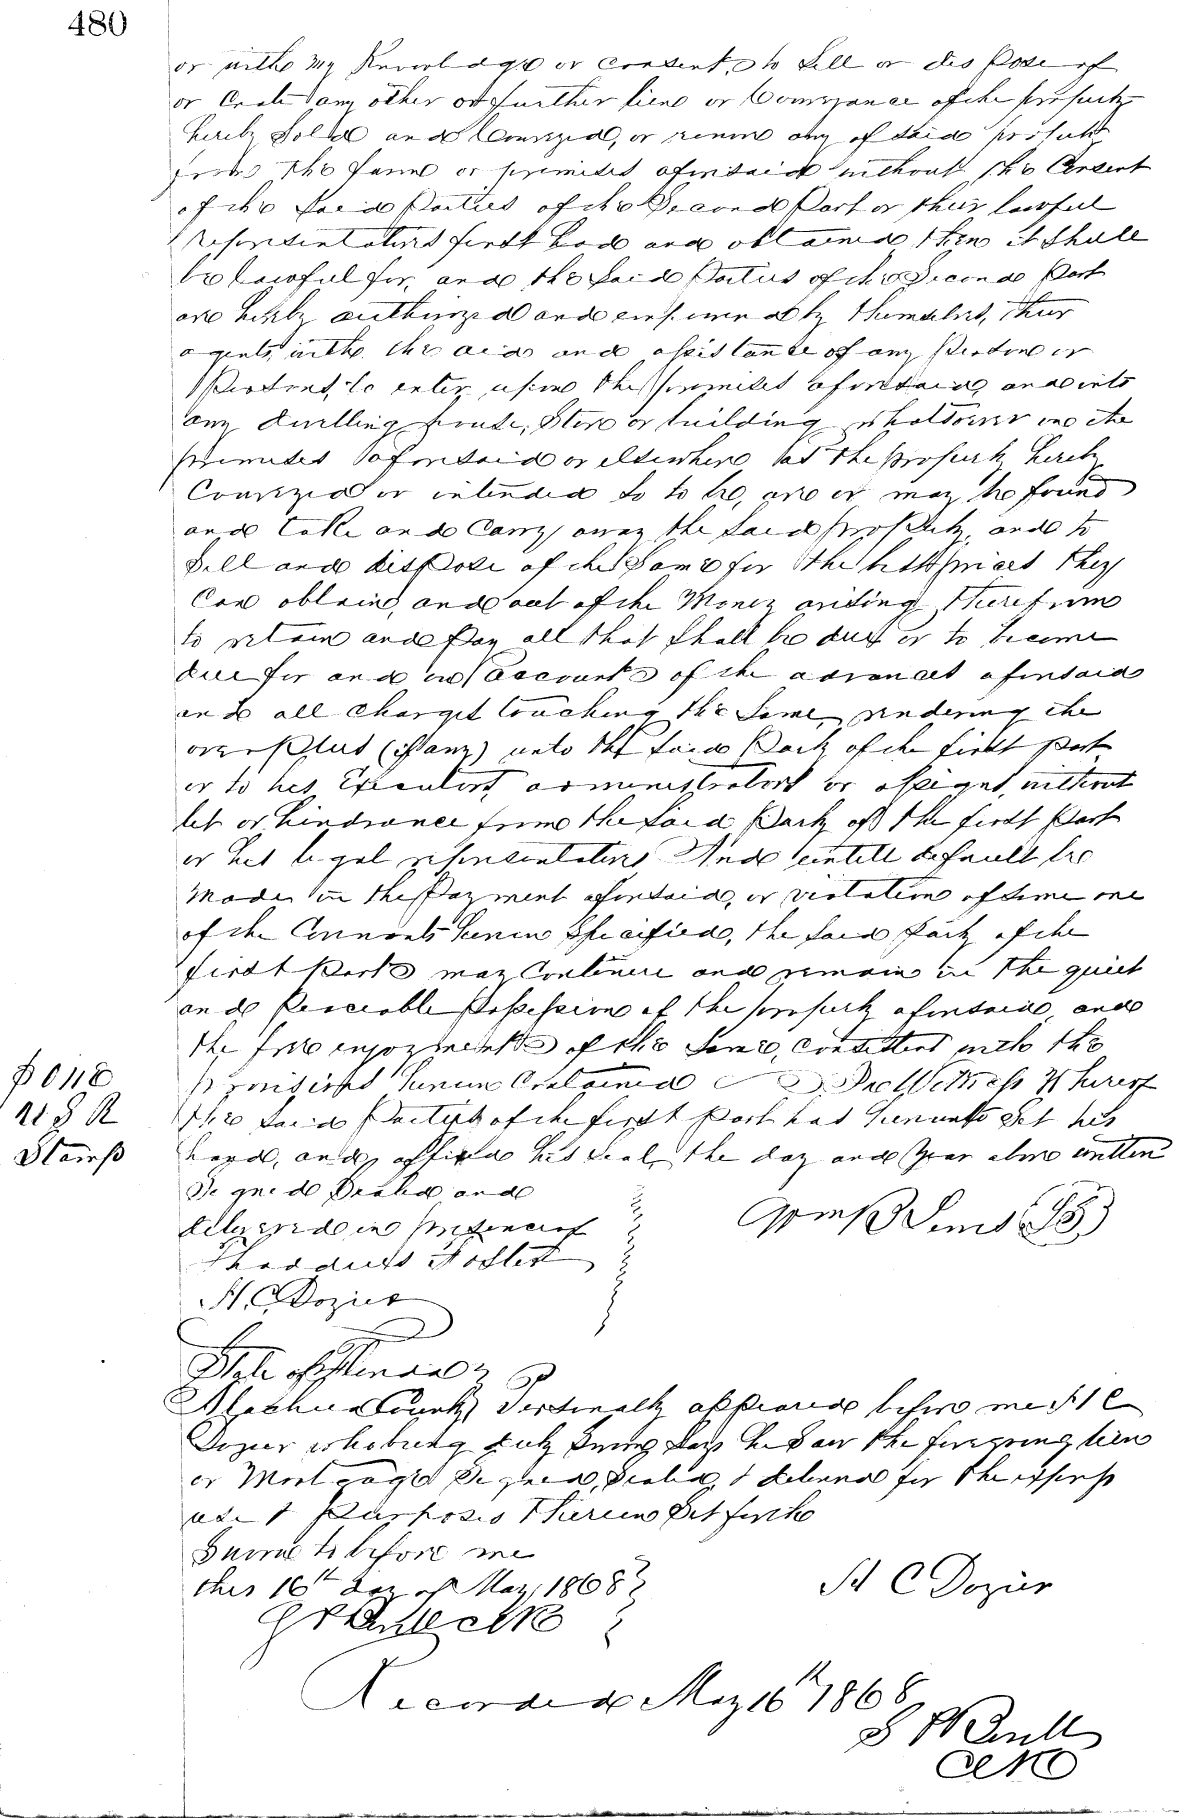 480
or with my Knowledge or consent, to Sell or dispose of
or Create any other or further lien or Conveyance of the property
hereby Sold and Conveyed, or remove any of said property
from the farm or premises aforesaid without the Consent
of the Said Parties of the Second Part or their lawful
representatives first had and obtained then it Shall
be lawful for, and the Said Parties of the Second Part
are hereby authorized and empowered by themselves, their
agents, with the aid and assistance of any Person or
Persons, to enter upon the premises aforesaid, and into
any dwelling house, Store or building whatsoever on the
premises aforesaid or elsewhere as the property hereby
Conveyed or intended so to be, are or may be found
and take and Carry away the Said property, and to
Sell and dispose of the Same for the best prices they
Can obtain, and out of the Money arising therefrom
to retain and Pay all that Shall be due or to become
due for and on account of the advances aforesaid
and all charges touching the Same, rendering the
overplus (if any) unto the Said Party of the first part
or to his Executors, administrators or assigns, without
let or hindrance from the Said Party of the first Part
or his legal representatives And until default be
made in the Payment aforesaid, or violation of Some one
of the Covenants herein Specified, the Said Party of the
first Part may Continue and remain in the quiet
and Peaceable Possession of the property aforesaid, and
the free enjoyment of the Same, consistent with the
provisions herein Contained In Witness Whereof
the Said Parties of the first Part has hereunto Set his
hand, and affixed his Seal, the day and Year above written
Signed Sealed and
delivered in presence of
Thaddeus Foster
H. C. Dozier
U S R
Stamp
State of Florida
Alachua County Personally appeared before me H C
Dozier who being duly Sworn Says he Saw the foregoing lien
or Mortgage Signed, Sealed, & delivered for the express
use & Purposes therein Set forth
Sworn to before me
this 16th day of May, 1868
H C Dozier
Recorded May 16th 1868
Clk